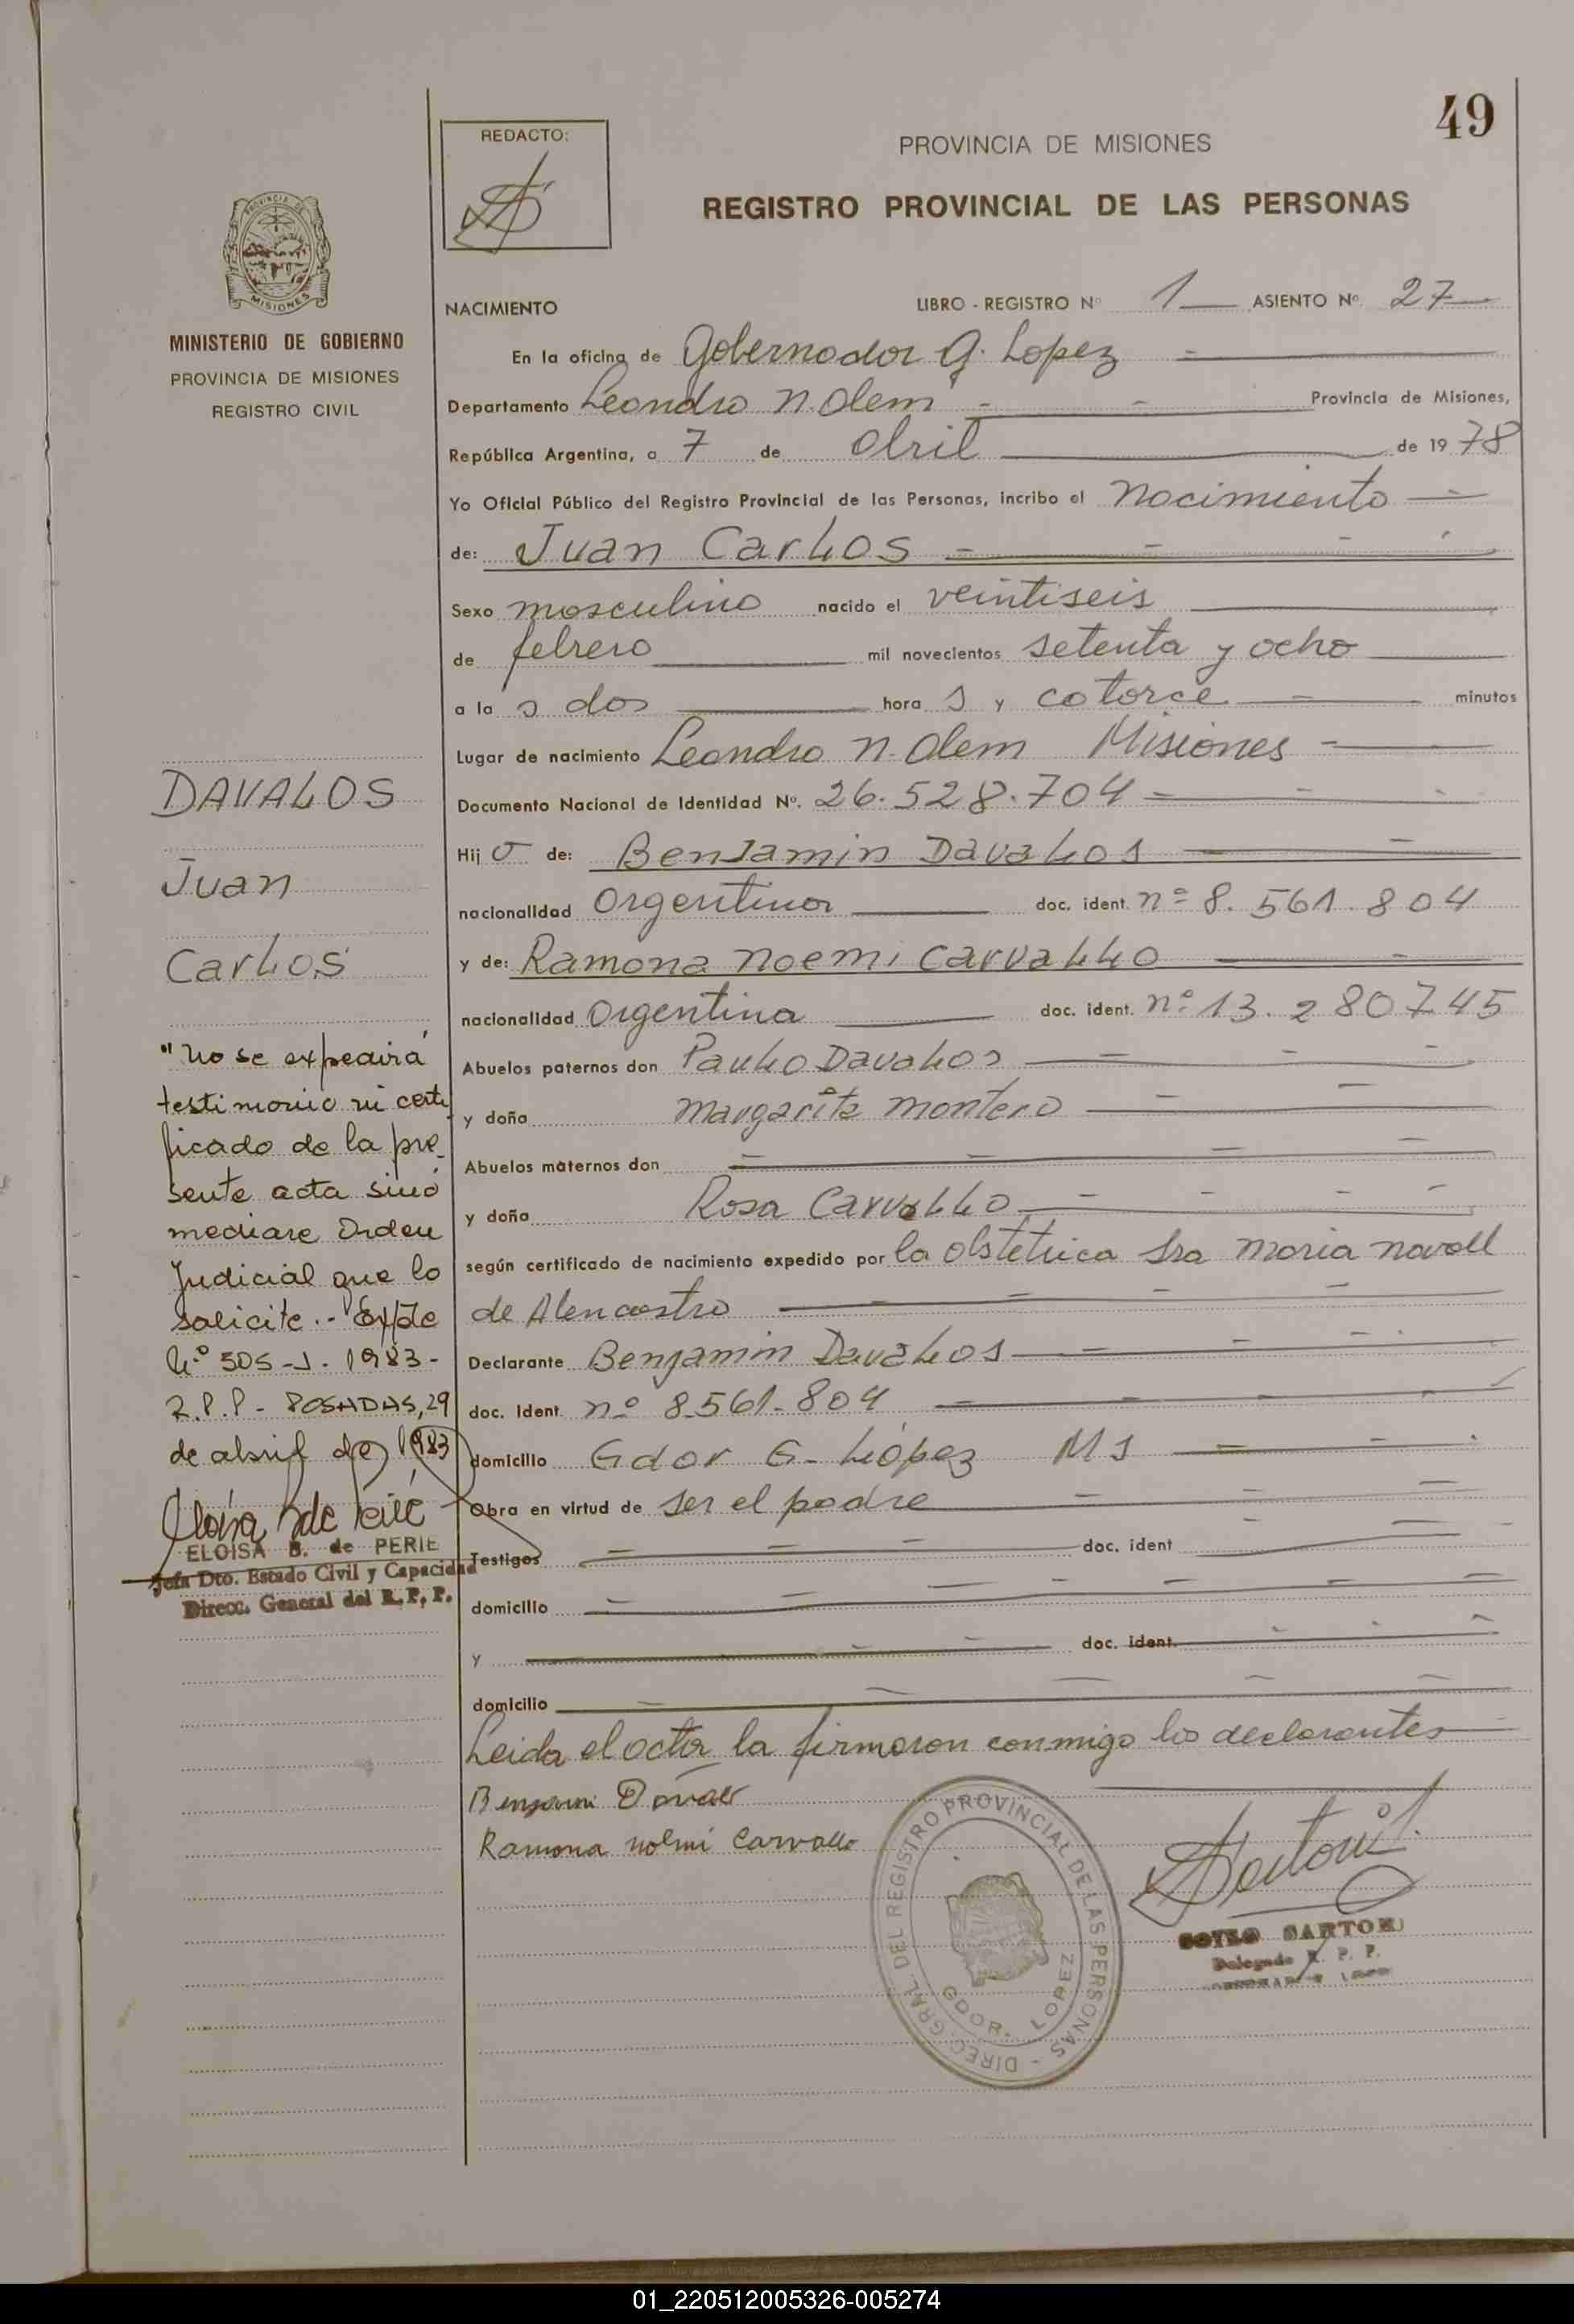 49
REDACTO:
PROVINCIA DE MISIONES
REGISTRO PROVINCIAL DE LAS PERSONAS
PROVINCIA DE
MISIONES
MINISTERIO DE GOBIERNO
PROVINCIA DE MISIONES
REGISTRO CIVIL
NACIMIENTO LIBRO - REGISTRO Nº 1 ASIENTO Nº 27
En la oficina de Gobernador G. Lopez
Departamento Leandro N. Alem Provincia de Misiones,
República Argentina, a 7 de Abril de 1978
Yo Oficial Público del Registro Provincial de las Personas, incribo el Nacimiento
de: Juan Carlos
Sexo masculino nacido el veintiseis
de febrero mil novecientos setenta y ocho
a la s dos hora s y catorce minutos
Lugar de nacimiento Leandro N. Alem Misiones
Documento Nacional de Identidad Nº. 26.528.704
Hij o de: Benjamin Davalos
nacionalidad Argentina doc. ident. nº 8.561.804
y de: Ramona Noemi Carvallo
nacionalidad Argentina doc. ident. nº 13.280745
Abuelos paternos don Paulo Davalos
y doña Margarita Montero
Abuelos maternos don
y doña Rosa Carvallo
según certificado de nacimiento expedido por la obstetrica Sra Maria
de Alencastro
Declarante Benjamin Davalos
doc. Ident. nº 8.561.804
domicilio Gdor G. López Ms
Obra en virtud de ser el padre
Testigos doc. ident
domicilio
y doc. ident.
domicilio
Leida el acta, la firmaron conmigo los declarantes
Ramona Noemi Carvallo
DAVALOS
Juan
Carlos
"No se expedirá
testimonio ni certi
ficado de la pre-
sente acta sinó
mediare Orden
Judicial que lo
solicite.- Expte
Nº 505-J-1983-
R.P.P- POSADAS, 29
de abril de 1983
ELOISA B. de PERIE
Jefa Dto. Estado Civil y Capacidad
Direcc. General del R.P.P.
DIREC. GRAL DEL REGISTRO PROVINCIAL DE LAS PERSONAS
GDOR. LOPEZ
SARTORI
Delegado R. P. P.
01_220512005326-005274